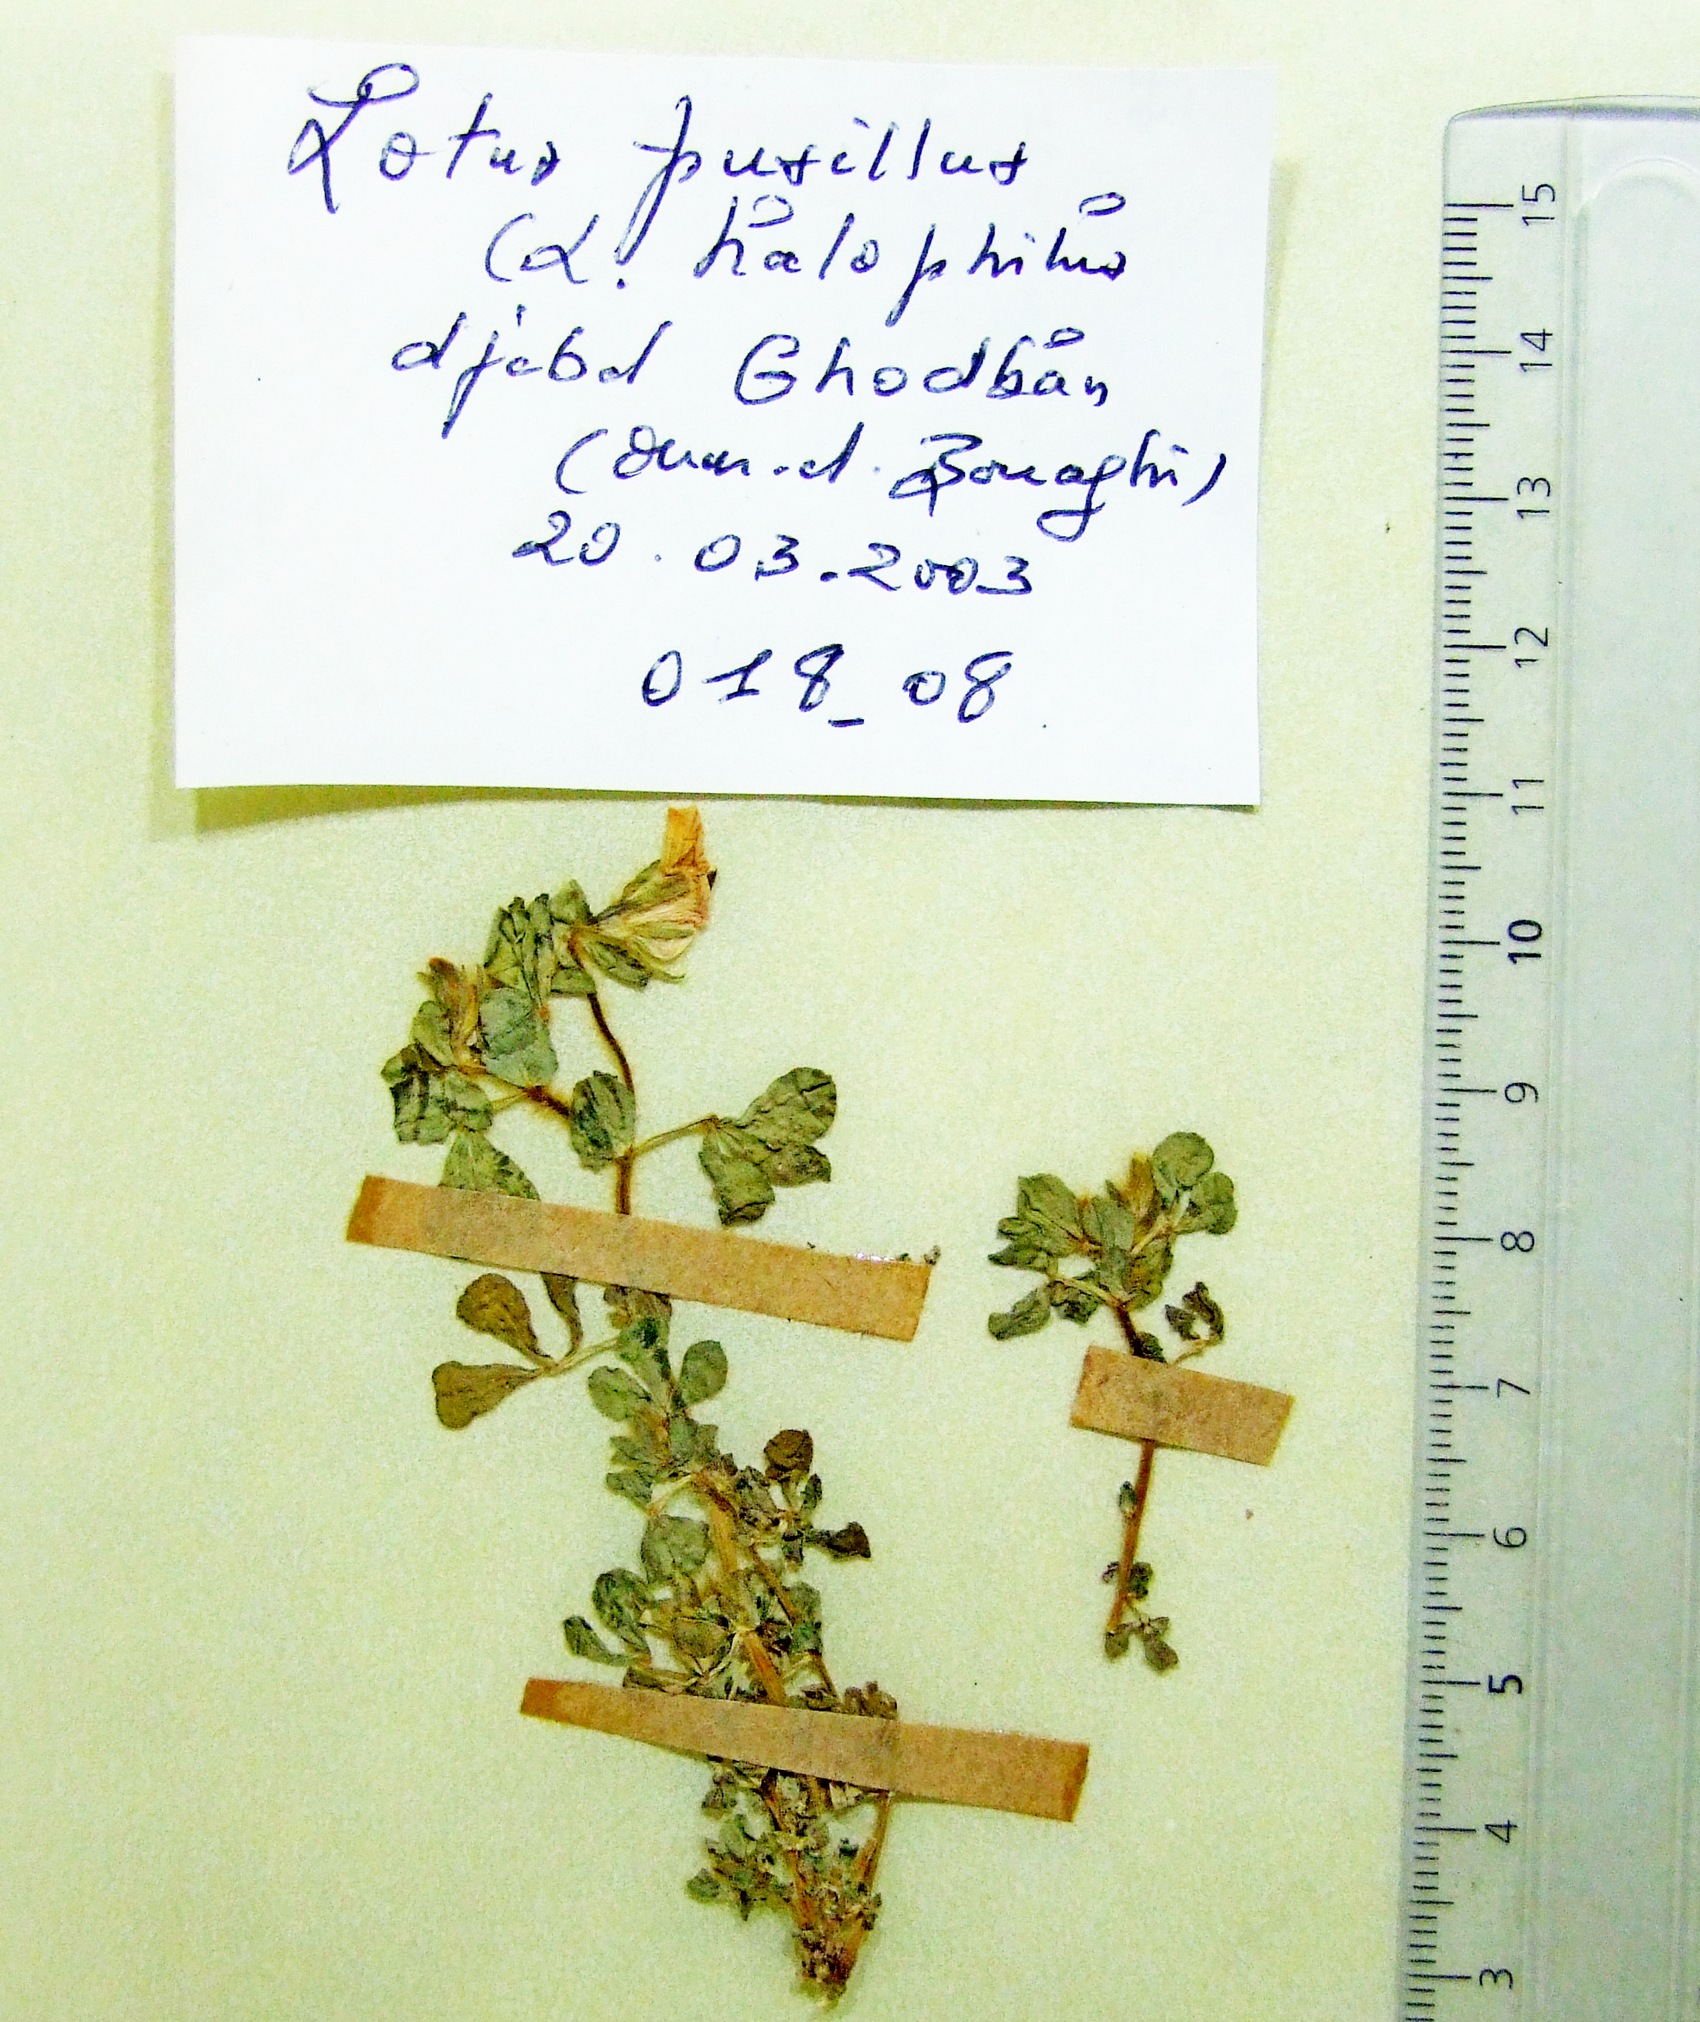 Lotus pusillus
(L. halophilus
djebel Ghodbân
(Oum.el.Bouaghi)
20.03.2003
018_08
15
14
13
12
11
10
9
8
7
6
5
4
3